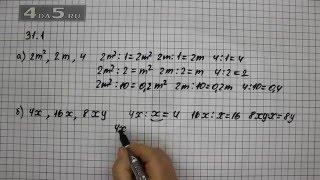 4DA5.RU
31.1
а) 2m², 2m, 4 2m²:1=2m² 2m:1=2m 4:1=4
2m²:2=m² 2m:2=m 4:2=2
2m²:10=0,2m² 2m:10=0,2m 4:10=0,4
б) 4x, 16x, 8xy 4x:x=4 16x:x=16 8xy:x=8y
4x